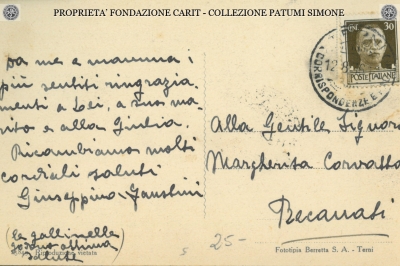 PROPRIETA' FONDAZIONE CARIT - COLLEZIONE PATUMI SIMONE
da me e mamma i
più sentiti ringrazia
menti a Lei, a suo ma
rito e alla Giulia.
Ricambiamo molti
cordiali saluti
Giuseppina Faustini
(le gallinelle
godono ottima
salute)
Riproduzione vietata
CENT. 30
POSTE ITALIANE
12.8
CORRISPONDENZE E
Alla Gentile Signora
Margherita Corvatta
Recanati
25-
Fototipia Benetta S. A. - Terni